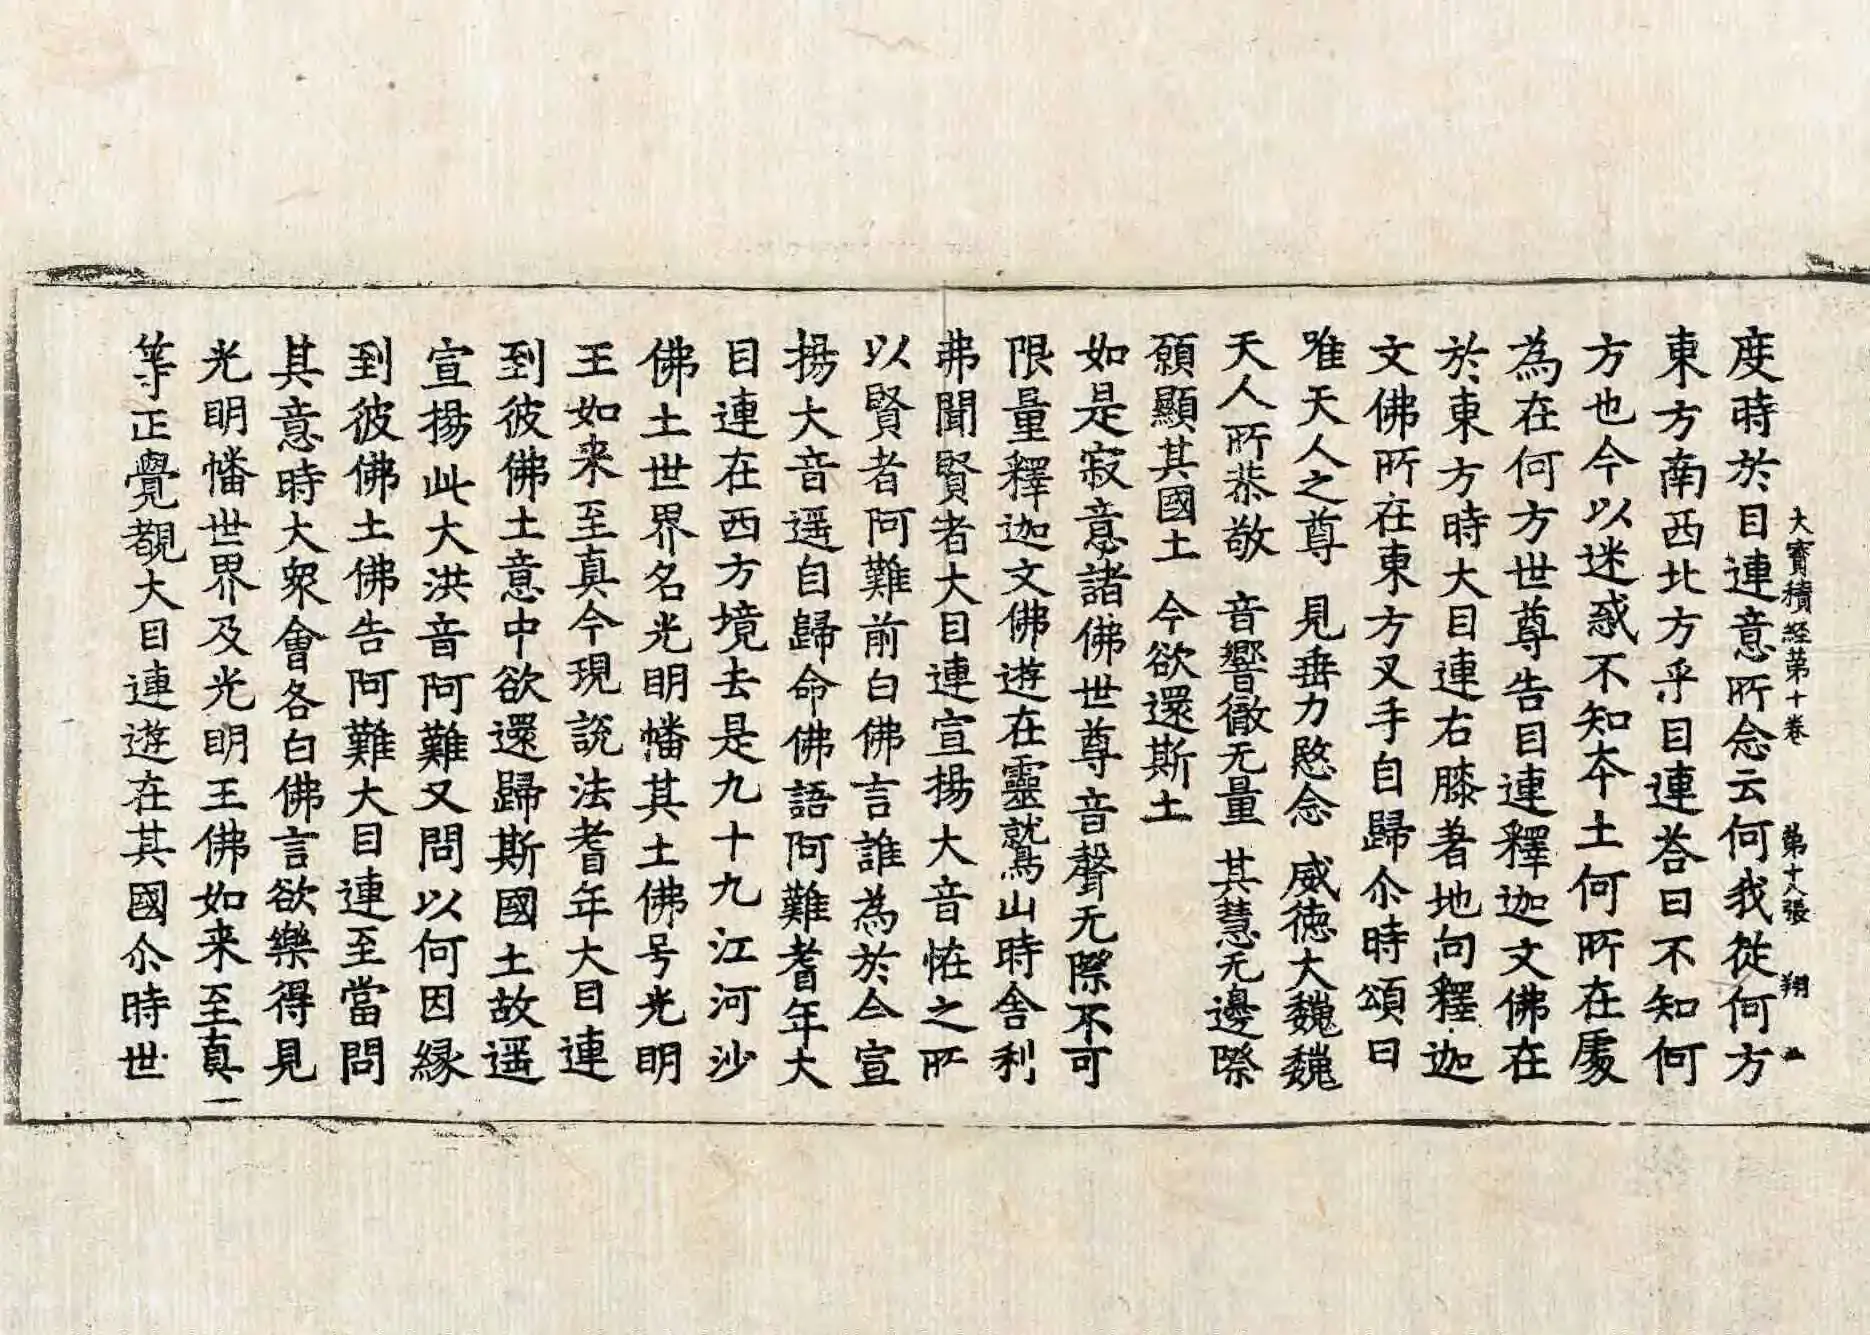 大寳積經第十卷 第十八張 翔
度時於目連意所念云何我從何方
東方南西北方乎目連荅曰不知何
方也今以迷惑不知本土何所在處
為在何方世尊告目連釋迦文佛在
於東方時大目連右膝著地向釋迦
文佛所在東方叉手自歸尒時頌曰
唯天人之尊 見垂力愍念 威德大巍巍
天人所恭敬 音響徹无量 其慧无邊際
願顯其國土 今欲還斯土
如是寂意諸佛世尊音聲无際不可
限量釋迦文佛遊在靈鷲山時舍利
弗聞賢者大目連宣揚大音恠之所
以賢者阿難前白佛言誰為於今宣
揚大音遥自歸命佛語阿難耆年大
目連在西方境去是九十九江河沙
佛土世界名光明幡其土佛号光明
王如来至真今現說法耆年大目連
到彼佛土意中欲還歸斯國土故遥
宣揚此大洪音阿難又問以何因緣
到彼佛土佛告阿難大目連至當問
其意時大衆會各白佛言欲樂得見
光明幡世界及光明王佛如来至真
等正覺覩大目連遊在其國尒時世